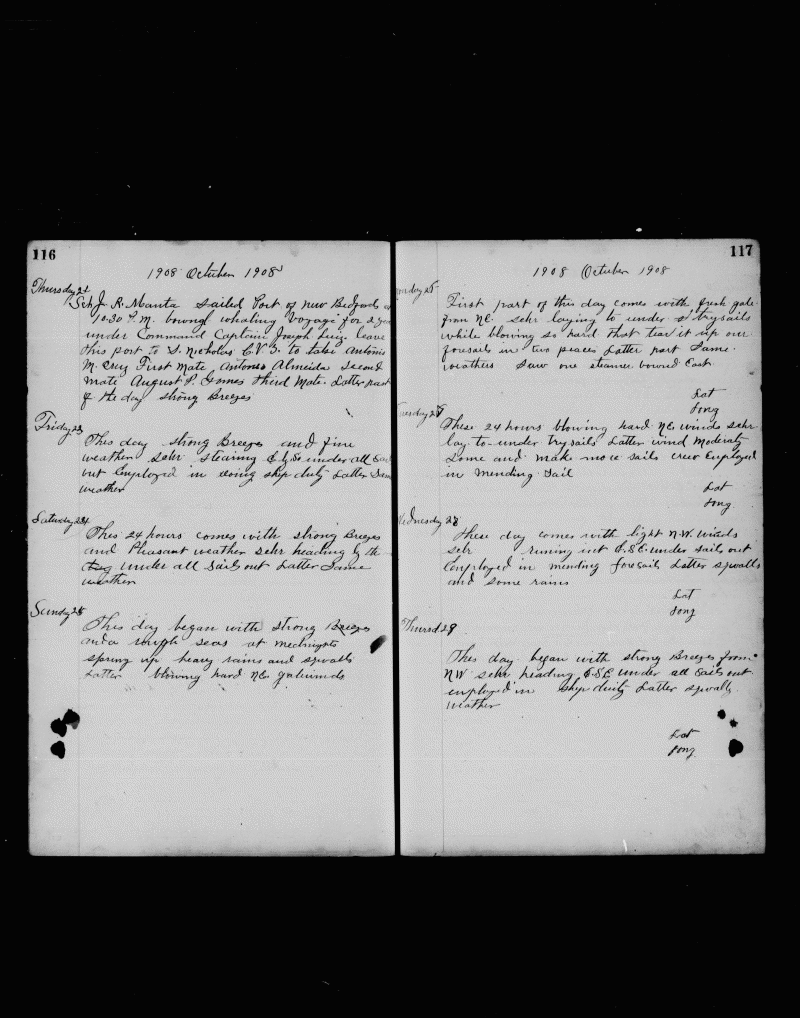 116
1908 October 1908
Thursday 22
Sch J. R. Manta sailed Port of New Bedford at
10-30 P.M. bound whaling voyage for 2 years
under Command Captain Joseph Luiz leave
this port to S. Nicholas C.V.I. to take Antonio
M. Cruz First Mate Antonio Almeida Second
mate August P. Gomes third Mate. Latter part
of the day strong Breezes
Friday 23
This day strong Breezes and fine
weather sehr steaming E by So under all Sail
out Employed in doing ship duty Latter Same
weather
Saturday 24
This 24 hours comes with strong Breezes
and Pleasant weather sehr heading by the
under all Sails out Latter Same
weather
Sunday 25
This day began with strong Breezes
and a rough seas at medneyote
spring up heavy rains and sqwalls
Latter blowing hard NE galwinds
117
1908 October 1908
Monday 26
First part of this day comes with fresh gale
from NE. sehr laying to under 2 trysails
while blowing so hard that tear it up our
foresails in two peaces Latter part Same
weathers Saw one steamer bound East
Lat
Long
Tuesday 27
These 24 hours blowing hard NE winds sehr
lay to under trysails Latter wind Moderatly
Some and make more sails crew Employed
in mending Sail
Lat
Long
Wednesday 28
These day comes with light N.W. winds
sehr runing int E.S.E under sails out
Employed in mending foresails Latter sqwalls
and some rains
Lat
Long
Thursd 29
This day began with strong Breezes from
NW sehr heading E.S.E under all Sails out
employed in ship duity Latter sqwally
weather
Lat
Long